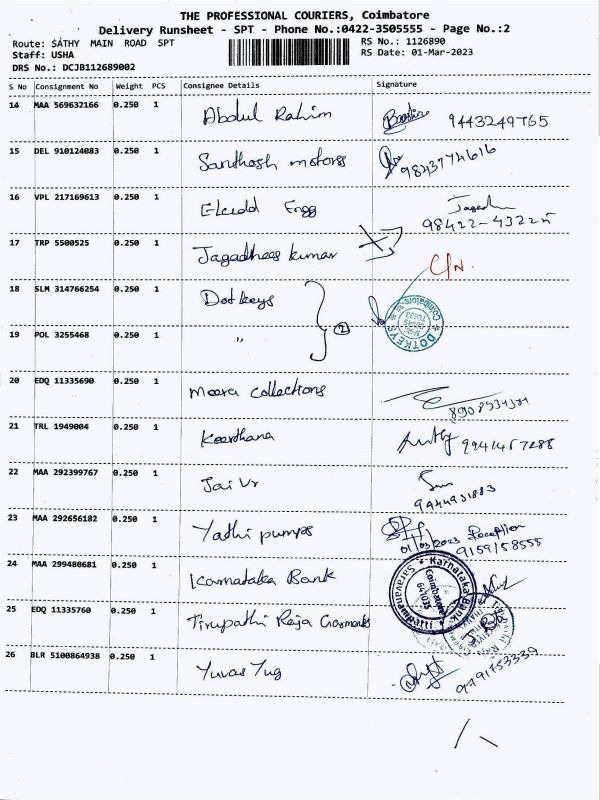 THE PROFESSIONAL COURIERS, Coimbatore
Delivery Runsheet - SPT - Phone No.:0422-3505555 - Page No.:2
Route: SATHY MAIN ROAD SPT
RS No.: 1126890
Staff: USHA
RS Date: 01-Mar-2023
DRS No.: DCJB112689002
S No Consignment No Weight PCS Consignee Details Signature
14 MAA 569632166 0.250 1 Abdul Rahim 9443249765
15 DEL 910124083 0.250 1 Santhosh motors 9843774616
16 VPL 217169613 0.250 1 Engg Jagadh
98422-43225
17 TRP 5500525 0.250 1 Jagadhees kumar
C/N.
18 SLM 314766254 0.250 1 Dotkeys
DOTKEYS
Coimbatore
19 POL 3255468 0.250 1 " 2
20 EDQ 11335690 0.250 1 Meera collections
21 TRL 1949004 0.250 1 Keerthana
22 MAA 292399767 0.250 1 Jai Vr
9944931883
23 MAA 292656182 0.250 1 Yathi pumps
01/03/2023 Reception
9159158555
24 MAA 299480681 0.250 1 Karnataka Bank
Karnataka Bank
Coimbatore
641035
Saravanampatti
25 EDQ 11335760 0.250 1 Tirupathi Raja Garments
26 BLR 5100864938 0.250 1 Yuvas Yug
9791753339